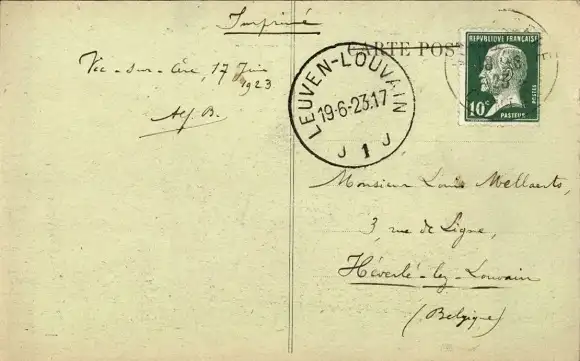 Imprimé
CARTE POS
Vic-sur-Cère, 17 Juin
1923
Alf. B.
LEUVEN-LOUVAIN
19-6-23.17
J 1 J
REPUBLIQUE FRANÇAISE
10c
POSTES
PASTEUR
Monsieur Louis Mellaerts,
3, rue de Ligne,
Héverlé-lez-Louvain
(Belgique)